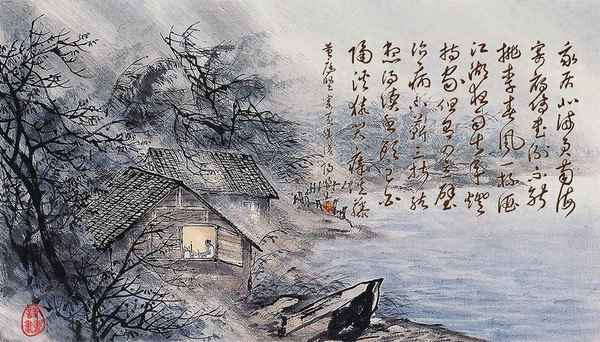 我居北海君南海
寄雁傳書謝不能
桃李春風一杯酒
江湖夜雨十年燈
持家但有四立壁
治病不蘄三折肱
想得讀書頭已白
隔溪猿哭瘴溪藤
黃庭堅寄黃幾復詩